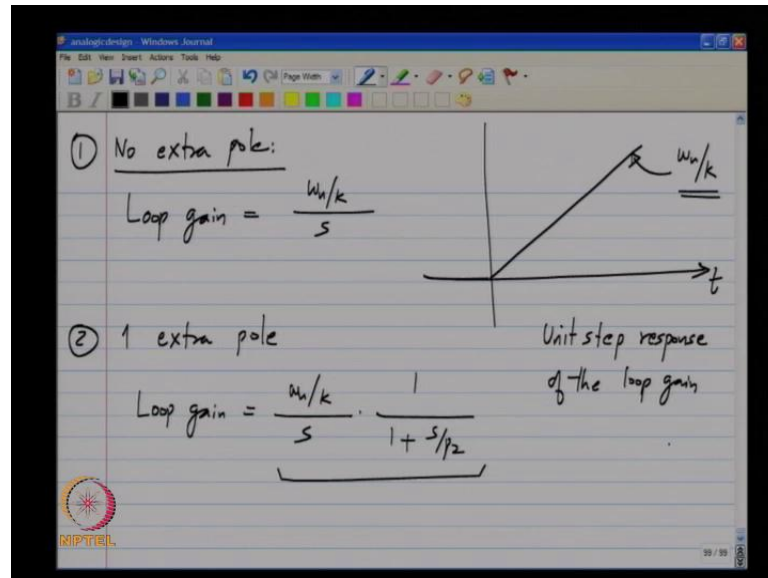 analogicdesign - Windows Journal
File Edit View Insert Actions Tools Help
Page Width
B I
① No extra pole:
Loop gain = ωu/k / s
ωu/k
t
② 1 extra pole
Loop gain = ωu/k / s · 1 / 1 + s/p2
Unit step response
of the loop gain
NPTEL
99 / 99